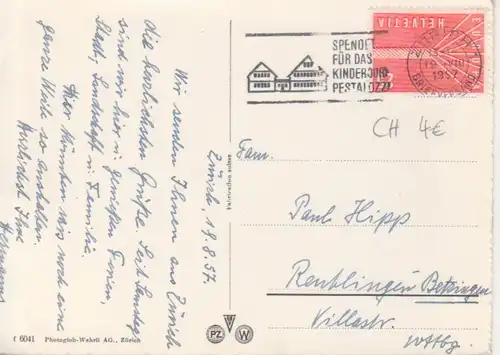 Zürich 19.8.57.
Wir senden Ihnen aus Zürich
die herzlichsten Grüße. Seit Samstag
sind wir hier in genießen Ferien,
Stadt, Landschaft u. Familie.
Wir könnten noch eine
ganze Weile so aushalten.
Herzlichst Ihre
Hermanns
f 6041 Photoglob-Wehrli AG., Zürich
SPENDET
FÜR DAS
KINDERDORF
PESTALOZZI
HELVETIA
19.VIII
1957
BRIEFVERSAND
CH 4€
Fam.
Paul Hipp
Reutlingen Betzingen
Villastr.
Wttbg.
PZ
W